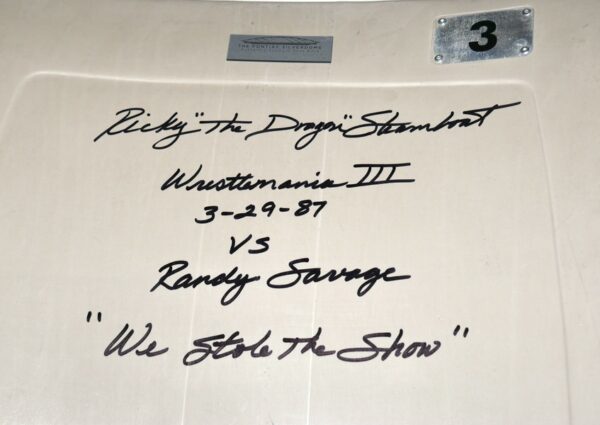 THE PONTIAC SILVERDOME
3
Ricky "The Dragon" Steamboat
Wrestlemania III
3-29-87
VS
Randy Savage
"We Stole The Show"